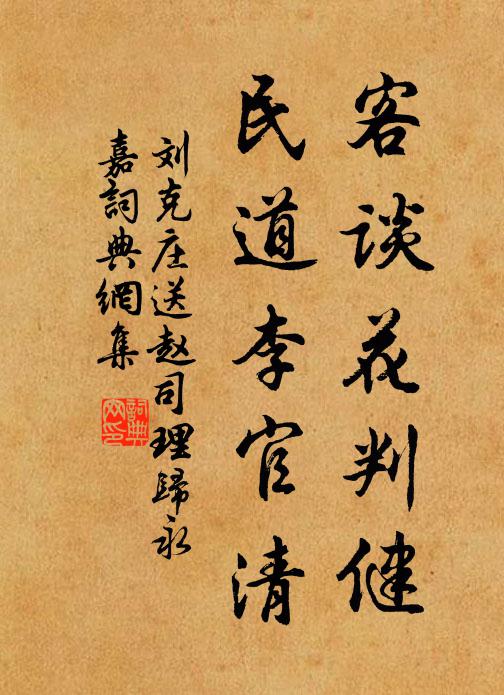 客谈花判健
民道李官清
刘克庄送赵司理歸永
嘉詞典網集
詞典网印